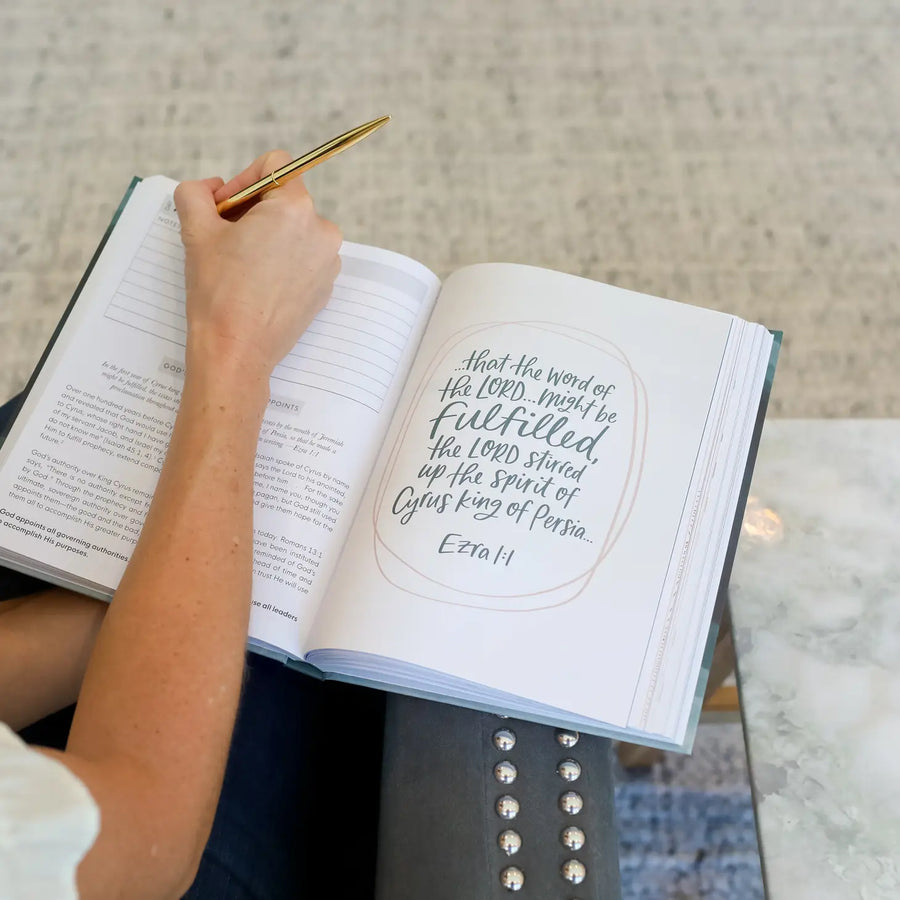 NOTES
GOD'S
POINTS
In the first year of Cyrus king
by the mouth of Jeremiah
might be fulfilled, the
of Persia, so that he made a
proclamation throughout
writing — Ezra 1:1
Over one hundred years before
Isaiah spoke of Cyrus by name
and revealed that God would use
says the Lord to his anointed,
to Cyrus, whose right hand I have
before him For the sake
of my servant Jacob, and Israel my
name, I name you, though you
do not know me" (Isaiah 45:1, 4).
pagan, but God still used
Him to fulfill prophecy, extend
and give them hope for the
future.
God's authority over King Cyrus
today. Romans 13:1
says, "There is no authority except
have been instituted
by God." Through the prophecy and
reminded of God's
ultimate, sovereign authority over
head of time and
appoints them—the good and the bad
trust He will use
them all to accomplish His greater
God appoints all governing authorities
use all leaders
accomplish His purposes.
...that the Word of
the LORD...might be
Fulfilled,
the LORD stirred
up the spirit of
Cyrus king of Persia...
Ezra 1:1